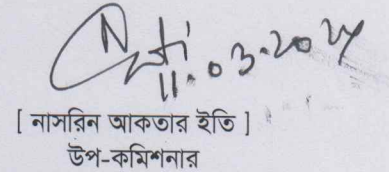 11.03.2024
[ নাসরিন আকতার ইতি ]
উপ-কমিশনার